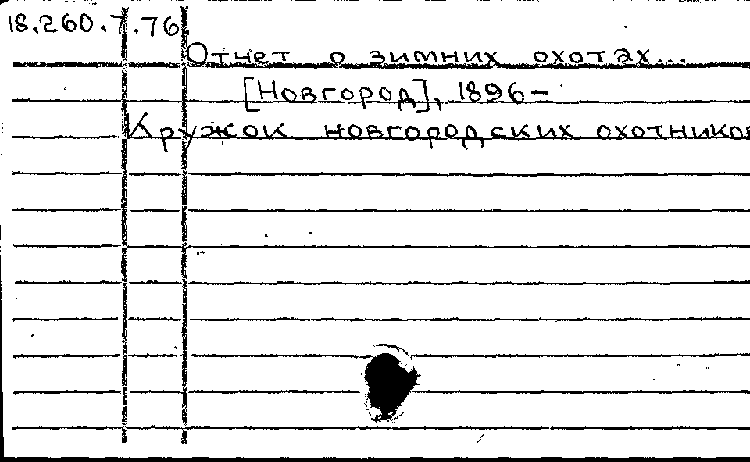 18.260.7.76
Отчет о зимних охотах...
[Новгород], 1896-
Кружок новгородских охотников